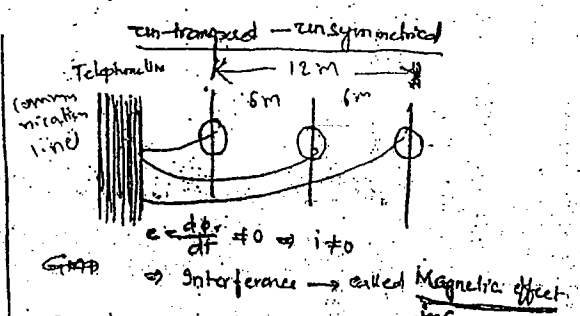 un-transposed - unsymmetrical
Telephone line
12m
6m 6m
(commu
nication
line)
e = dϕr/dt ≠ 0 ⇒ i ≠ 0
GMD
⇒ Interference → called Magnetic effect